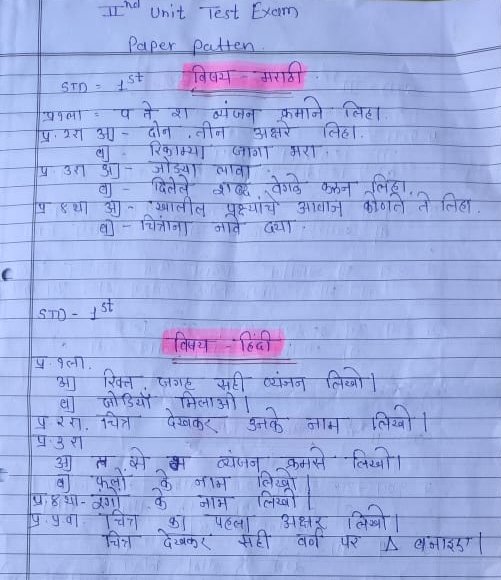 IInd Unit Test Exam
Paper Patten.
STD = 1st विषय - मराठी
प्र१ला = प ते श व्यंजन क्रमाने लिहा.
प्र. २रा अ] - दोन, तीन अक्षरे लिहा.
ब] - रिकाम्या जागा भरा.
प्र. ३रा अ] - जोड्या लावा
ब] - दिलेले शब्द वेगळे करून लिहा.
प्र ४था अ] - खालील प्रक्ष्यांचे आवाज कोणते ते लिहा.
ब] - चित्रांना नावे द्या.
STD - 1st
विषय - हिंदी
प्र. १ला.
अ] रिक्त जगह सही व्यंजन लिखो |
ब] जोडियाँ मिलाओ |
प्र २रा. चित्र देखकर उनके नाम लिखो |
प्र. ३रा
अ] त से व्यंजन क्रमसे लिखो |
ब] फलों के नाम लिखो |
प्र. ४था - रंगो के नाम लिखो |
प्र. ५वा. चित्र का पहला अक्षर लिखो |
चित्र देखकर सही वर्ण पर △ बनाइए |